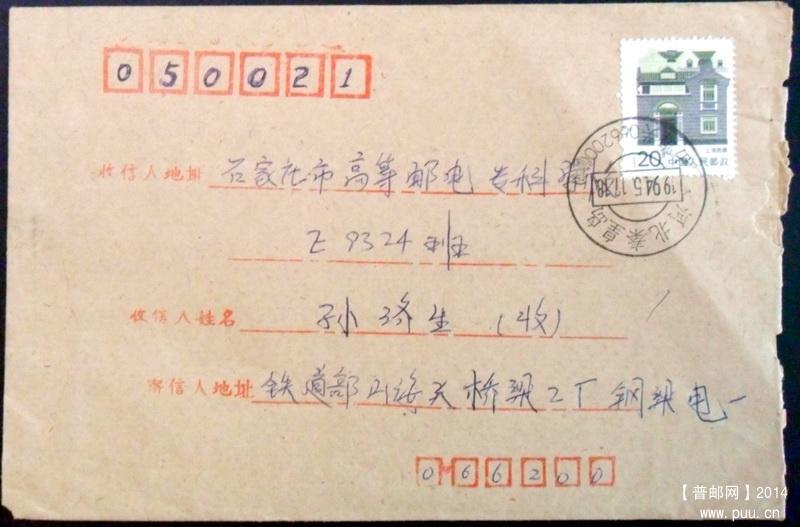 050021
上海民居
20 中国人民邮政
收信人地址 石家庄市高等邮电专科学校
河北秦皇岛
1994.5.17.18
Z 9324班
收信人姓名 孙济生（收）
寄信人地址 铁道部山海关桥梁工厂钢梁电一
066200
【普邮网】2014
www.puu.cn